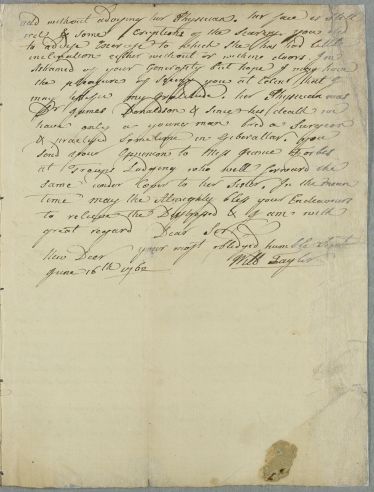 and without advising her Physician. her face is still
red & some Eruptions of the Scurvy you
to advise Exercise to which She has had little
inclination either without or within doors. I'm
ashamed of your Generosity but hope I may have
the pleasure of Seeing you at Colen that I
may my Gratitude. her Physician was
Dr James Donaldson & since his death we
have only a young man bred a Surgeon
& practised Sometime in Gibralter. you
Send your Opinion to Miss Grance Forbes
at Lodging who will forward the
same under Cover to her Sister. In the mean
time may the Almighty bless your Endeavours
to relieve the Distressed & I am with
great regard Dear Sir
your most obliged humble Servt
New Deer Will Taylor
June 16th 1762